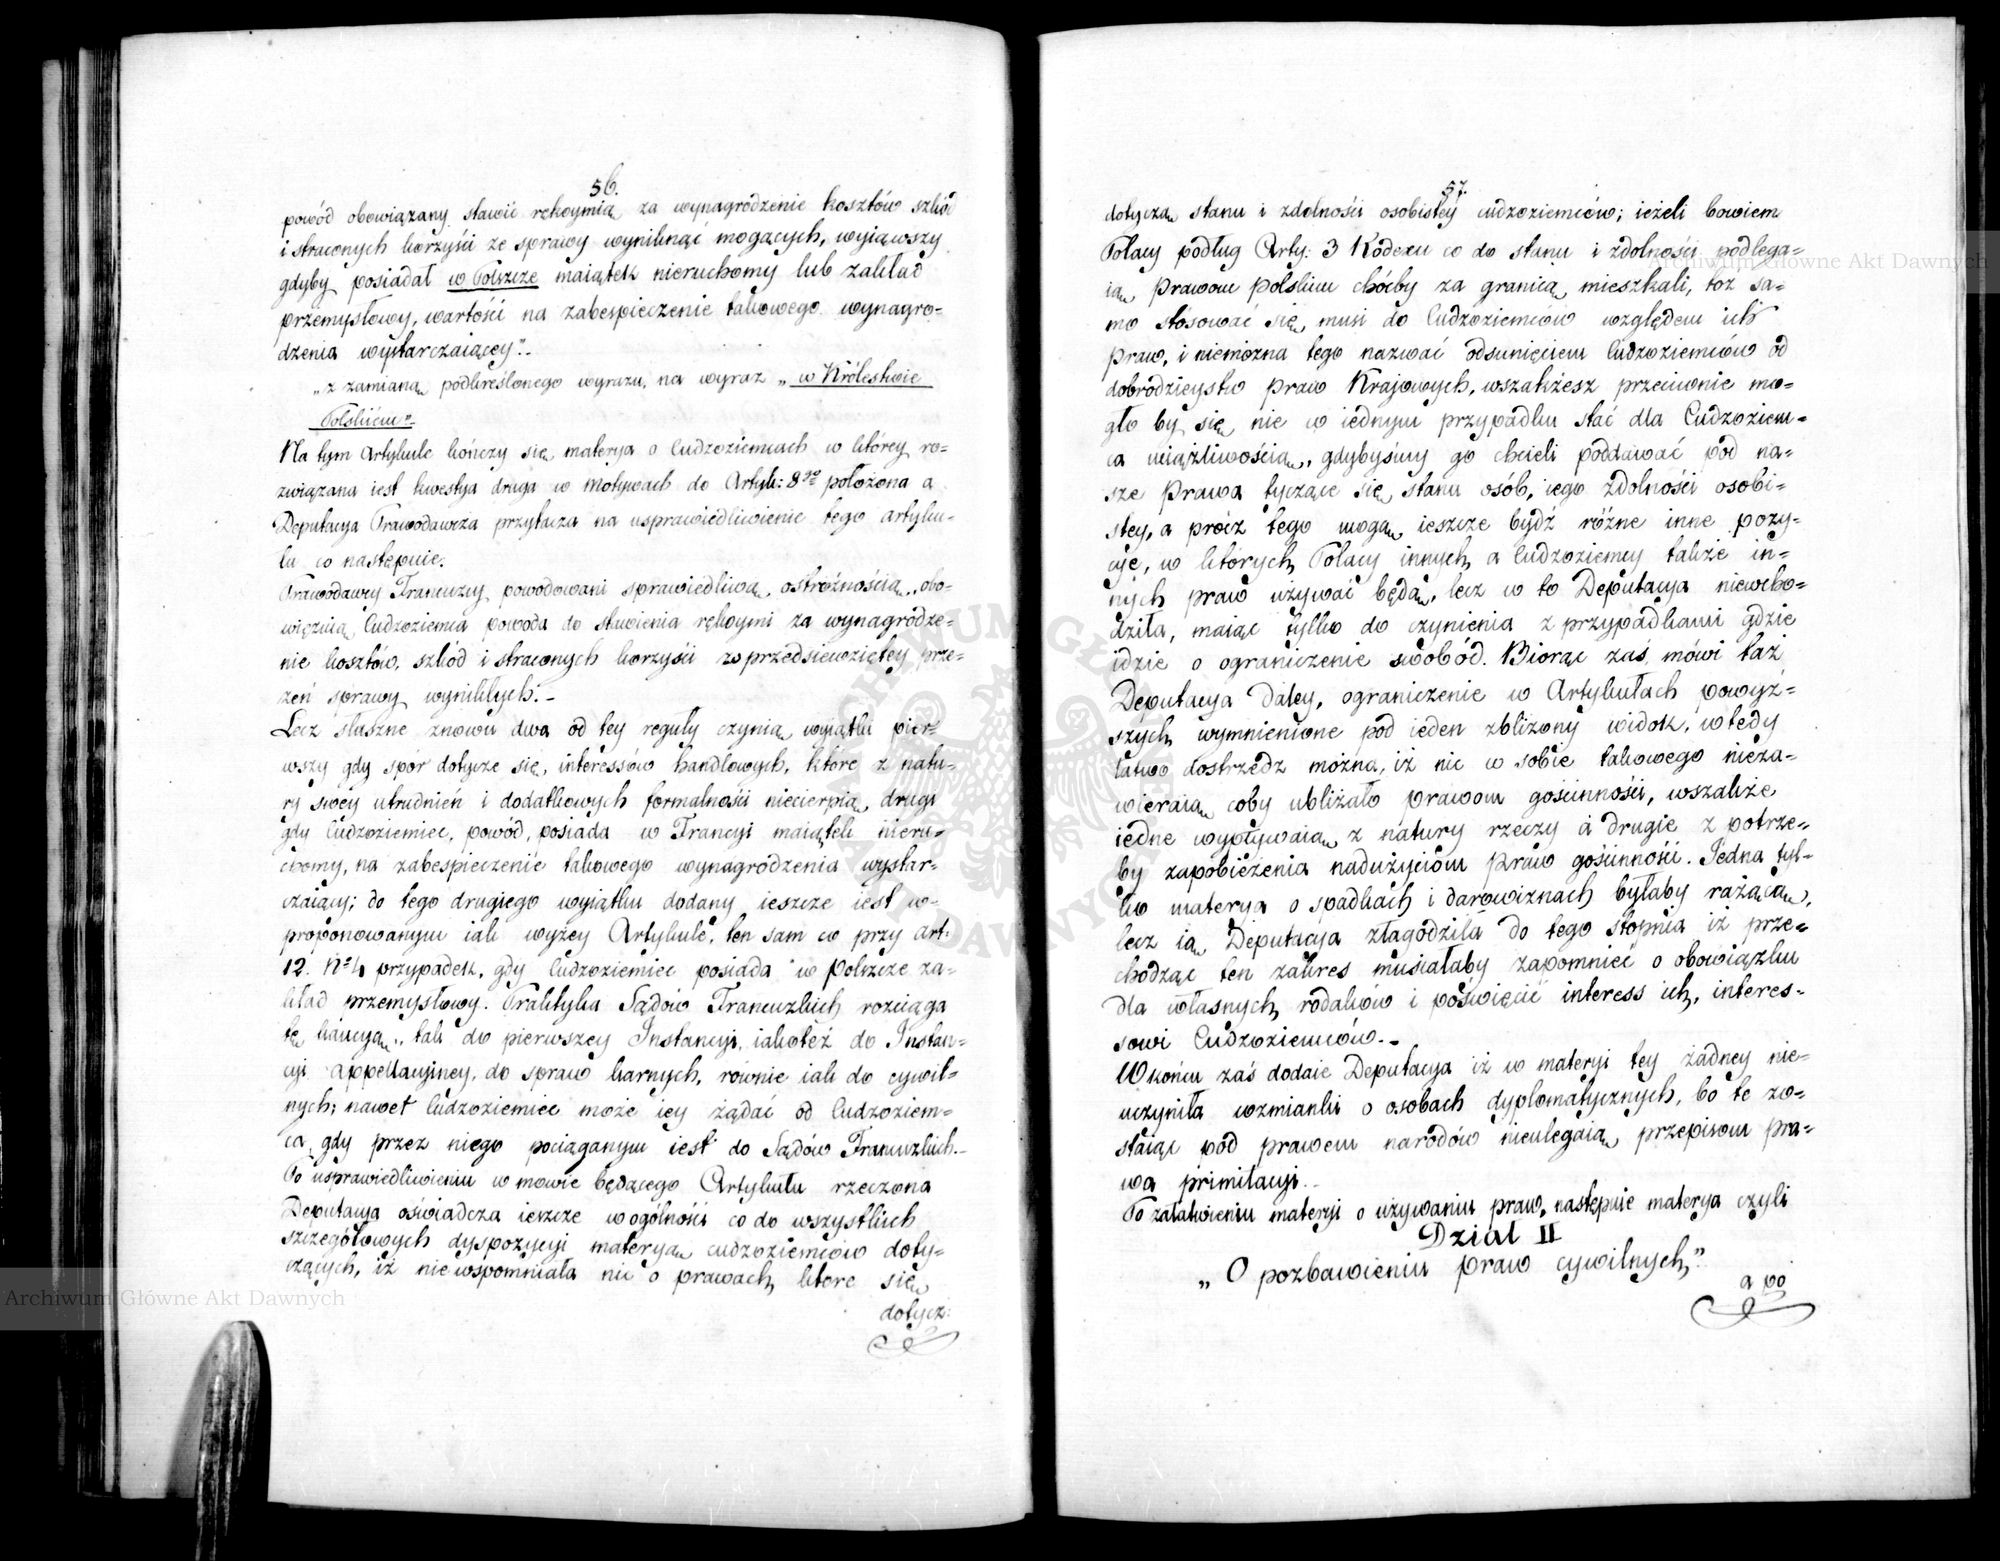 56.
powód obowiązany stawić rękoymią za wynagrodzenie kosztów szkód
i straconych korzyści ze sprawy wyniknąć mogących, wyiąwszy
gdyby posiadał w Polszcze maiątek nieruchomy lub zakład
przemysłowy, wartości na zabespieczenie takowego wynagro=
dzenia wystarczaiącey".
„z zamianą podkreślonego wyrazu, na wyraz „w Królestwie
Polskiém"
Na tym Artykule kończy się materya o Cudzoziemcach w którey ro=
związana iest kwestya druga w Motywach do Artyk: 8go położona a
Deputacya Prawodawcza przytacza na usprawiedliwienie tego artyku=
łu co następuie.
Prawodawcy Francuzcy powodowani sprawiedliwą ostróżnością, obo=
więzuią Cudzoziemca powoda do stawienia rękoymi za wynagródze=
nie kosztów, szkód i straconych korzyści z przedsiewziętey prze=
zeń sprawy wynikłych.–
Lecz słuszne znowu dwa od tey reguły czynią wyiątki pier=
wszy gdy spór dotycze się interessów handlowych, które z natu=
ry swey utrudnień i dodatkowych formalności niecierpią, drugi
gdy Cudzoziemiec, powód, posiada w Francyi maiątek nieru=
chomy, na zabespieczenie takowego wynagródzenia wystar=
czaiący; do tego drugiego wyiątku dodany ieszcze iest w=
proponowanym iak wyżey Artykule, ten sam co przy art:
12. No 4 przypadek, gdy Cudzoziemiec posiada w Polszcze za=
kład przemysłowy. Praktyka Sądów Francuzkich rozciąga
tę kaucyą, tak do pierwszey Instancyi, iakoteż do Instan=
cyi appellacyiney, do spraw karnych, równie iak do cywil=
nych; nawet Cudzoziemiec może iey żądać od Cudzoziem=
ca, gdy przez niego pociąganym iest do Sądów Francuzkich.–
Po usprawiedliwieniu w mowie będącego Artykułu rzeczona
Deputacya oświadcza ieszcze w ogólności co do wszystkich
szczegółowych dyspozycyi materyą cudzoziemców doty=
czących, iż nie wspomniała nic o prawach, które się
dotycz:
57.
dotyczą stanu i zdolności osobistey cudzoziemców; ieżeli bowiem
Polacy podług Arty: 3 Kodexu co do stanu i zdolności podlega=
ią Prawom polskim chóćby za granicą mieszkali, toż sa=
mo stosować się musi do Cudzoziemców względem ich
praw, i niemożna tego nazwać odsunięciem Cudzoziemców od
dobrodzieystw Praw Krajowych, wszakżesz przeciwnie mo=
gło by się nie w iednym przypadku stać dla Cudzoziem=
ca uciążliwością, gdybyśmy go chcieli poddawać pod na=
sze Prawa tyczące się stanu osób, iego zdolności osobi=
stey, a prócz tego mogą ieszcze bydź różne inne pozy=
cye, w których Polacy innych a Cudzoziemcy także in=
nych praw używać będą, lecz w to Deputacya niewcho=
dziła, maiąc tylko do czynienia z przypadkami gdzie
idzie o ograniczenie swobód. Biorąc zaś mówi taż
Deputacya daley, ograniczenie w Artykułach powyż=
szych wymnienione pod ieden zbliżony widok, wtedy
łatwo dostrzedz można, iż nic w sobie takowego nieza=
wieraią coby ubliżało prawom gościnności, wszakże
iedne wypływaią z natury rzeczy a drugie z potrze=
by zapobieżenia nadużyciom praw gościnności. Jedna tyl=
ko materya o spadkach i darowiznach byłaby rażącą,
lecz ią Deputacya złagódziła do tego stopnia iż prze=
chodząc ten zakres musiałaby zapomniéc o obowiązku
dla własnych rodaków i poświęcić interess ich, interes=
sowi Cudzoziemców.–
W końcu zaś dodaie Deputacya iż w materyi tey żadney nie=
uczyniła wzmianki o osobach dyplomatycznych, bo te zo=
staiąc pód prawem narodów nieulegaią przepisom pra=
wa
Po załatwieniu materyi o używaniu praw, następuie materya czyli
Dział II
„O pozbawieniu praw cywilnych"
a po